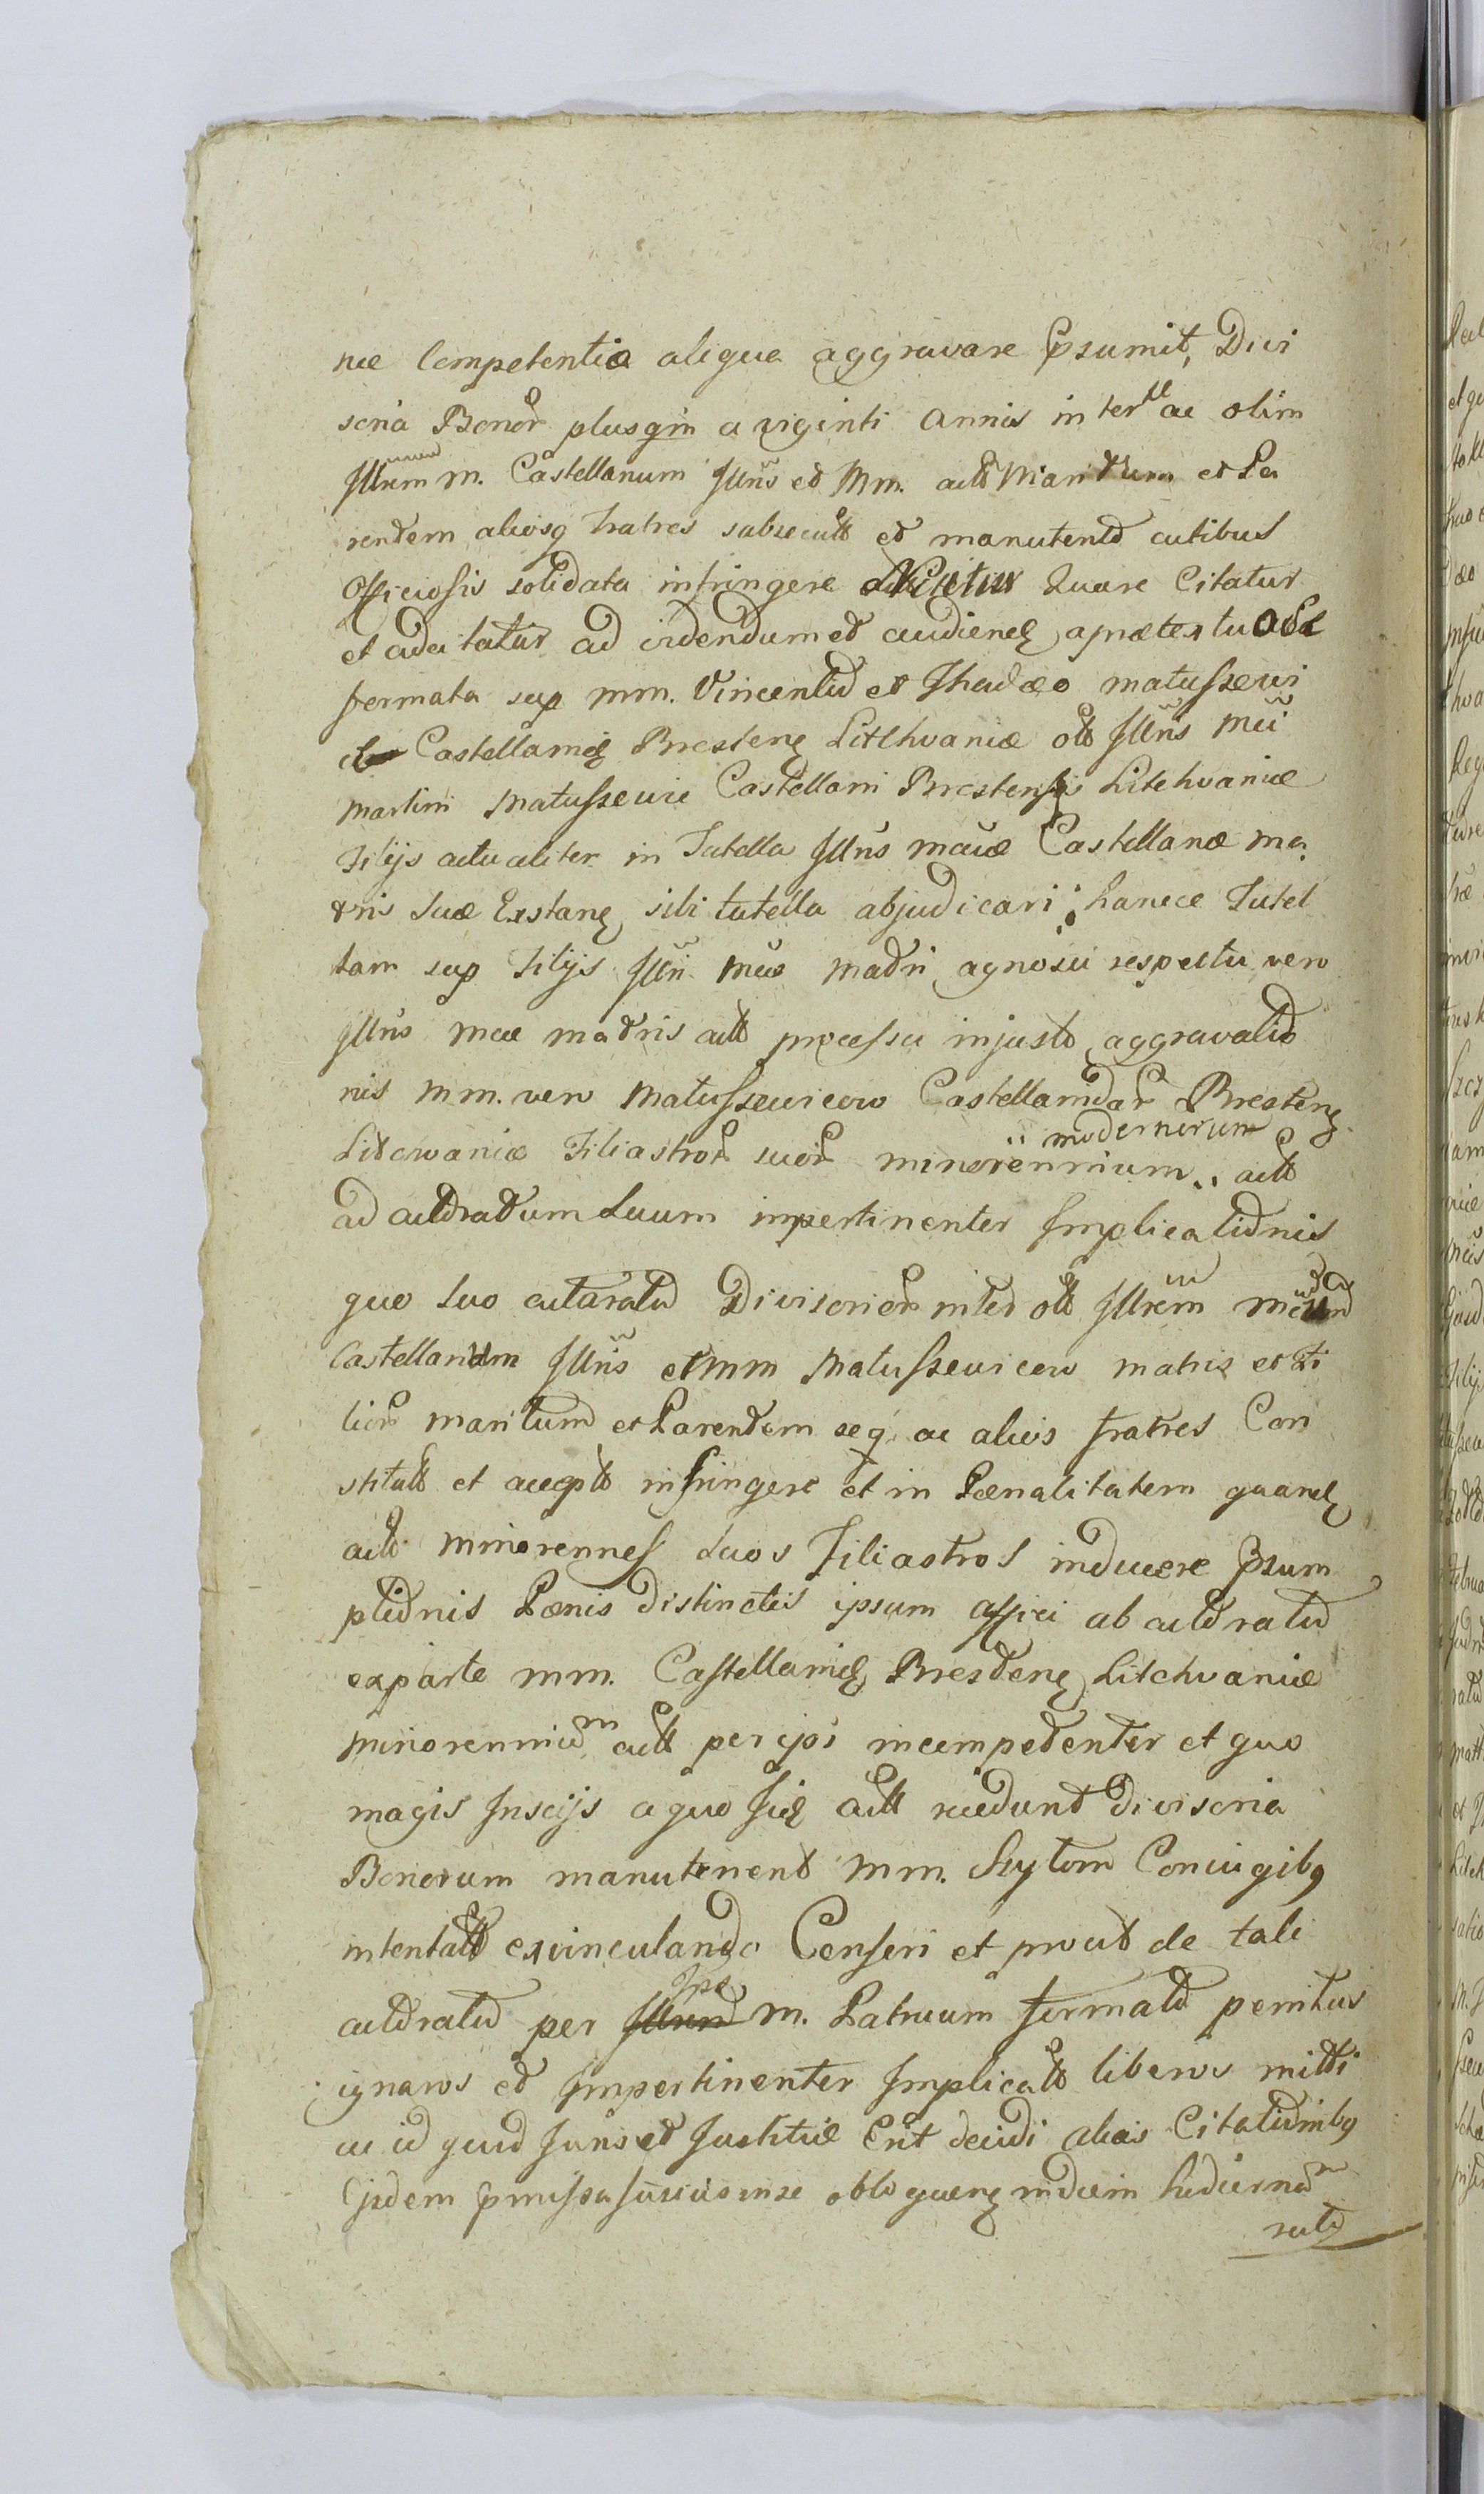 næ Competentiæ aliqua aggravare Præsumit, Divi
soria Bonor plusqm a viginti annis inter se ac olim
Illrem m. Castellanum Illris et Mm. actt Maritum et Pa
rentem aliosq fratres subsecutt et manutentt actibus
Officiosis solidata infringere Quare Citatur
et adcitatur ad videndum et audiend a prætextuo se
formata sup mm. Vincentio et Thadæo Matuszewi
Castellanid Bresten Litthvaniæ ott Illris Mci
Martini Matuszewic Castellani Brestensis Litthvaniæ
Filijs actualiter in Tutella Illris Mcæ Castellanæ ma
tris Suæ Exstan sibi tutella abjudicari hancce Tutel
lam sup Filijs Illri Mcæ Matri agnosci respectu vero
Illris Mcæ Matris actt processu injusto aggravatio
nis mm. vero Matuszewicow Castellanidar Bresten
Litwaniæ Filiastror suor minorennium modernorum actt
ad actoratum suum impertinenter Implicationis
quo suo actoratu Divisorior inter ott Illrem
Castellanum Illris et mm Matuszewicow matris et Fi
lior maritum et Parentem seq ac alios fratres Con
stitutt et accept infringere et in Pœnalitatem quand
actt minorennes suos Filiastros inducere Præsum
ptionis Pœnis distinctis ipsum affici ab actoratu
ex parte mm. Castellanid Bresten Litthvaniæ
minorennium actt per ipsi incompetenter et quo
magis Inscijs a quo sic actt recedunt divisoria
Bonorum manutenent mm. Scytom Coniugibq
intentatt exvinculando Censeri et prout de tali
actoratu per Ipse m. Patruum formato penitus
ignaros et Impertinenter Implicatt liberos mitti
ac id quid Juris et Justitiæ Erit decidi alias Citationibq
Ejsdem Præmissa obloquen indiem hodiernam